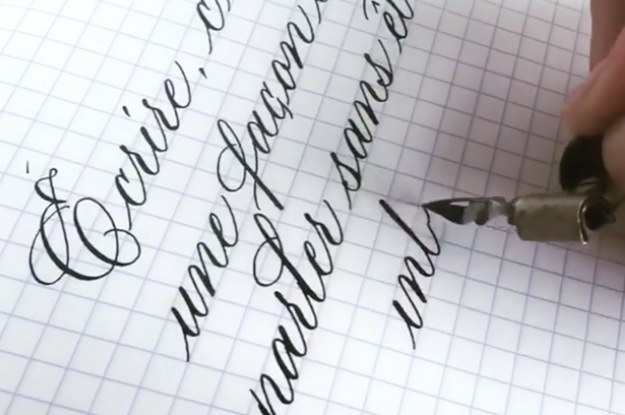 Écrire, c
une façon
parler sans ê
int